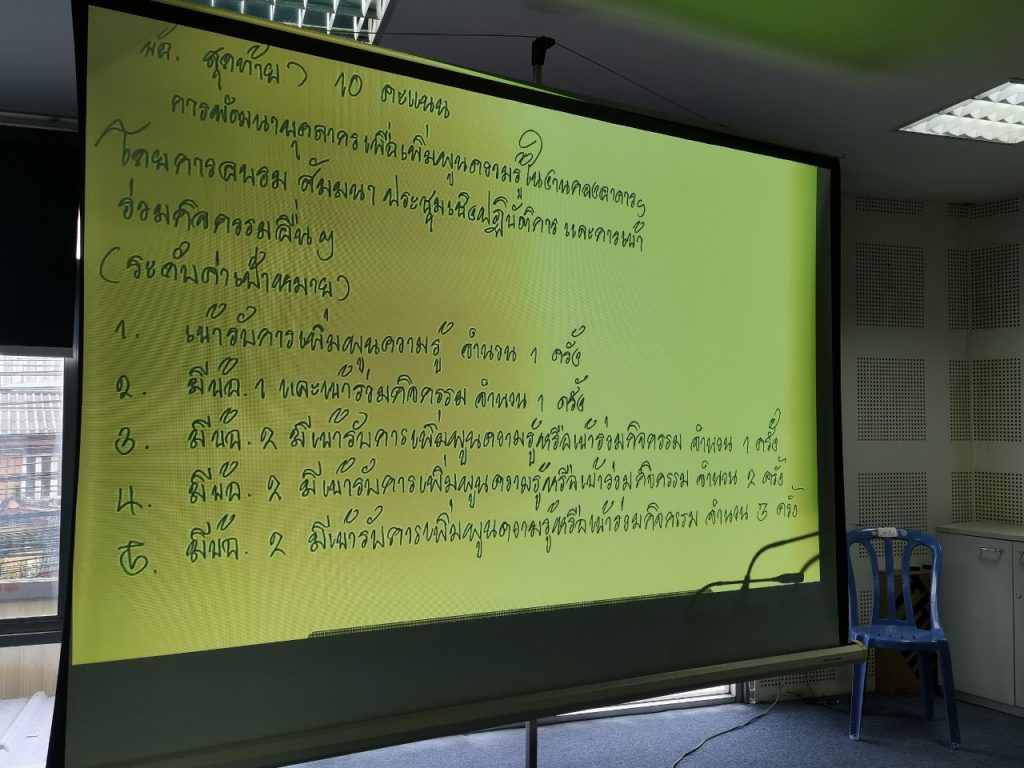 ข้อ. สุดท้าย ) 10 คะแนน
การพัฒนาบุคลากรเพื่อเพิ่มพูนความรู้ในงานคลังอาคารฯ
โดยการอบรม สัมมนา ประชุมเชิงปฏิบัติการ และการเข้า
ร่วมกิจกรรมอื่นๆ
(ระดับค่าเป้าหมาย)
1. เข้ารับการเพิ่มพูนความรู้ จำนวน 1 ครั้ง
2. มีข้อ. 1 และเข้าร่วมกิจกรรม จำนวน 1 ครั้ง
3. มีข้อ. 2 มีเข้ารับการเพิ่มพูนความรู้หรือเข้าร่วมกิจกรรม จำนวน 1 ครั้ง
4. มีข้อ. 2 มีเข้ารับการเพิ่มพูนความรู้หรือเข้าร่วมกิจกรรม จำนวน 2 ครั้ง
5. มีข้อ. 2 มีเข้ารับการเพิ่มพูนความรู้หรือเข้าร่วมกิจกรรม จำนวน 3 ครั้ง